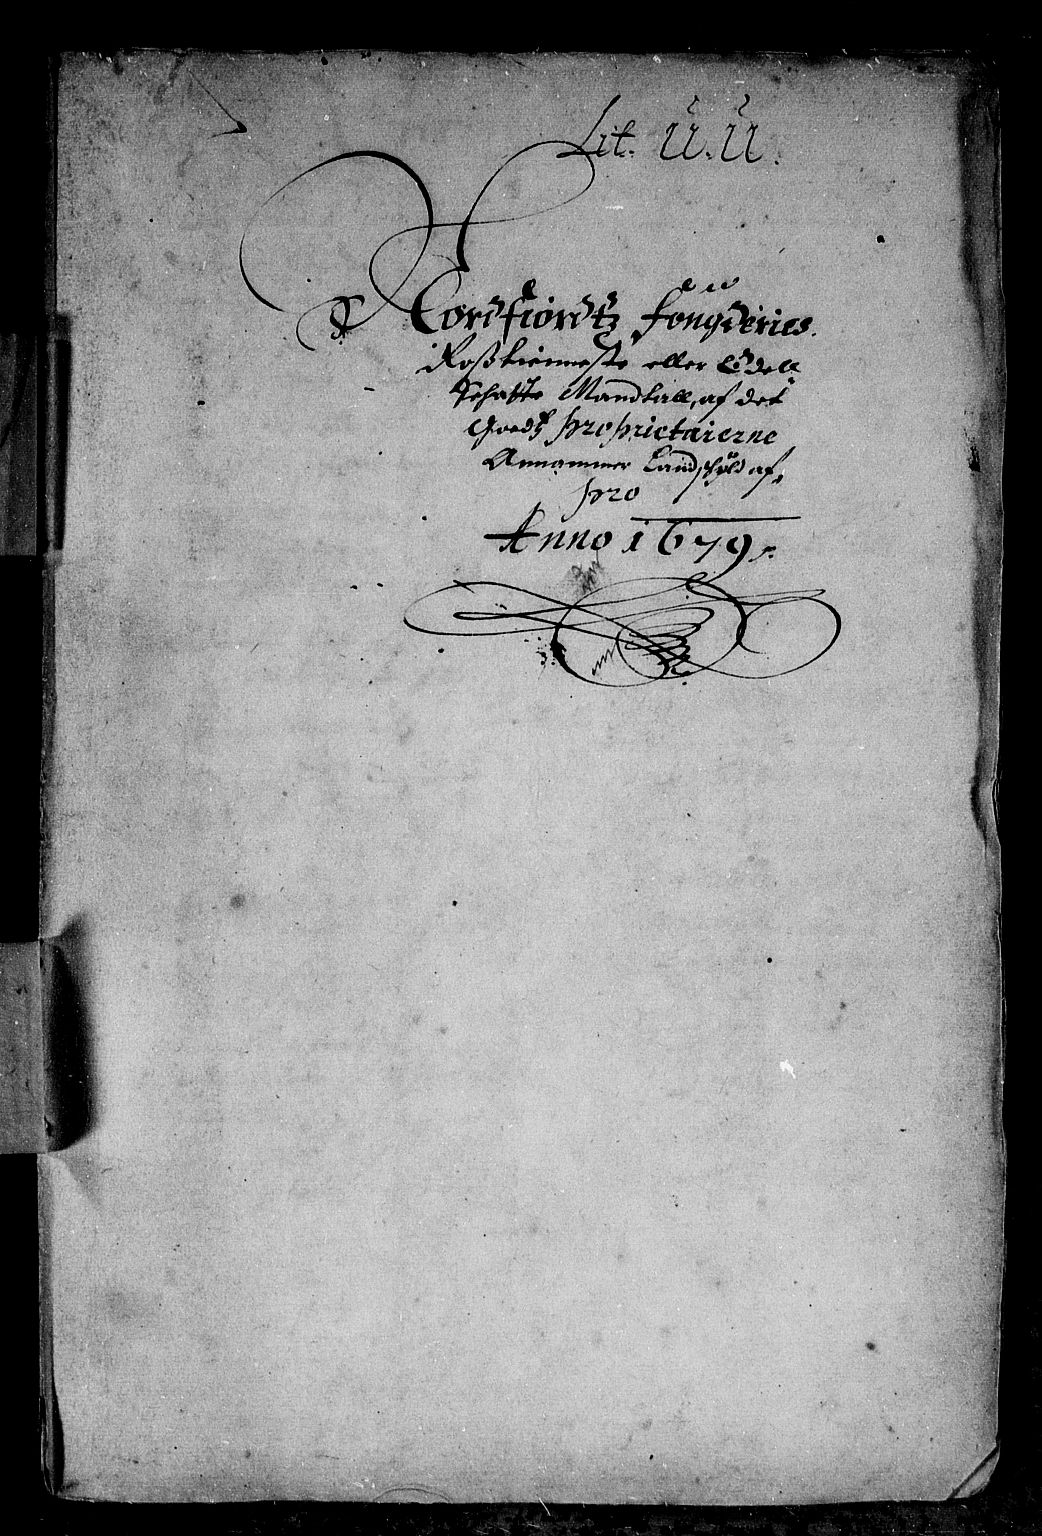 Lit. ŬŬ.
Nordfiordtz Fougderies
Roßtienneste eller Ŏdell
Schatte Mandtall, af det
Goedtz Proprietairerne
Annammer Landschŭld af,
pro
Anno 1679